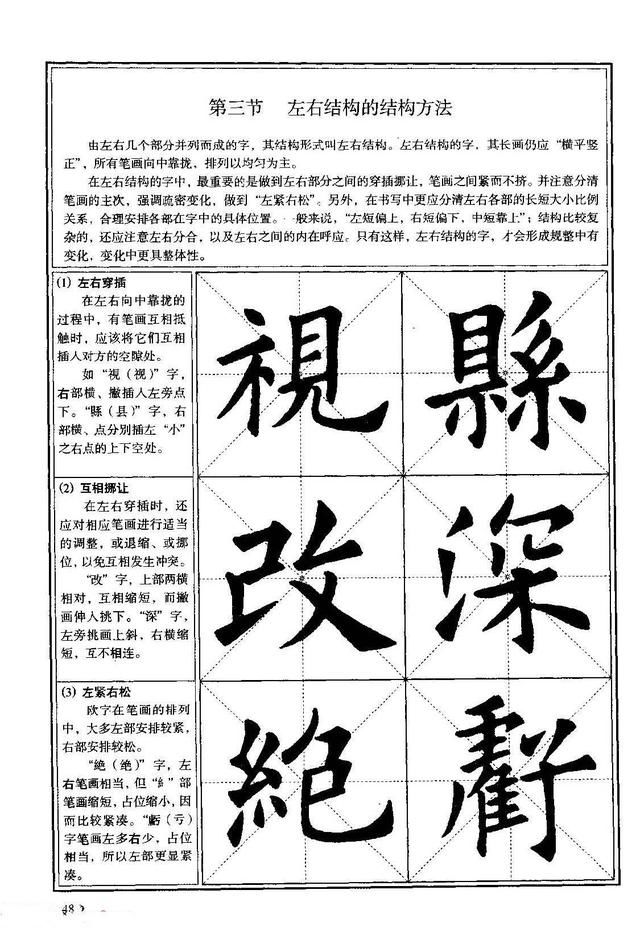 第三节　左右结构的结构方法
由左右几个部分并列而成的字，其结构形式叫左右结构。左右结构的字，其长画仍应“横平竖
正”，所有笔画向中靠拢、排列以均匀为主。
在左右结构的字中，最重要的是做到左右部分之间的穿插挪让，笔画之间紧而不挤。并注意分清
笔画的主次，强调疏密变化，做到“左紧右松”。另外，在书写中更应分清左右各部的长短大小比例
关系，合理安排各部在字中的具体位置。一般来说，“左短偏上，右短偏下，中短靠上”；结构比较复
杂的，还应注意左右分合，以及左右之间的内在呼应。只有这样，左右结构的字，才会形成规整中有
变化，变化中更具整体性。
(1) 左右穿插
在左右向中靠拢的
过程中，有笔画互相抵
触时，应该将它们互相
插入对方的空隙处。
如“視（视）”字，
右部横、撇插入左旁点
下。“縣（县）”字，右
部横、点分别插左“小”
之右点的上下空处。
視 縣
(2) 互相挪让
在左右穿插时，还
应对相应笔画进行适当
的调整，或退缩、或挪
位，以免互相发生冲突。
“改”字，上部两横
相对，互相缩短，而撇
画伸入挑下。“深”字，
左旁挑画上斜，右横缩
短，互不相连。
改 深
(3) 左紧右松
欧字在笔画的排列
中，大多左部安排较紧，
右部安排较松。
“絶（绝）”字，左
右笔画相当，但“糹”部
笔画缩短，占位缩小，因
而比较紧凑。“虧（亏）
字笔画左多右少，占位
相当，所以左部更显紧
凑。
絶 虧
48